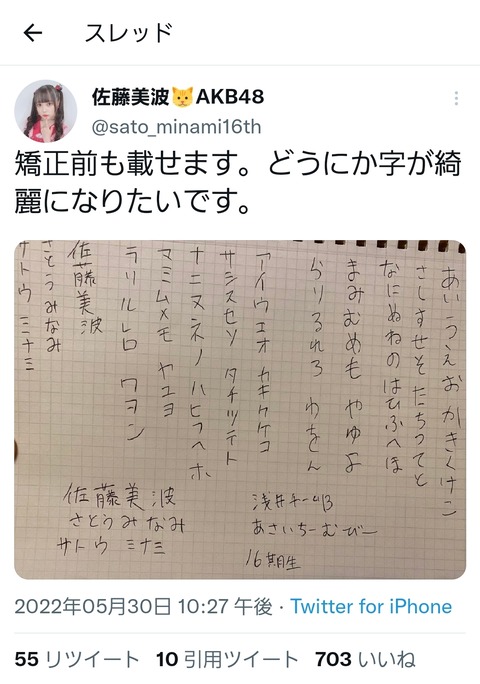 スレッド
佐藤美波🐱AKB48
@sato_minami16th
矯正前も載せます。どうにか字が綺
麗になりたいです。
あいうえお かきくけこ
さしすせそ たちつてと
なにぬねの はひふへほ
まみむめも やゆよ
らりるれろ わをん
アイウエオ カキクケコ
サシスセソ タチツテト
ナニヌネノ ハヒフヘホ
マミムメモ ヤユヨ
ラリルレロ ワヲン
佐藤美波
さとうみなみ
サトウ ミナミ
浅井チームB
あさいちーむびー
16期生
佐藤美波
さとうみなみ
サトウ ミナミ
2022年05月30日 10:27 午後 · Twitter for iPhone
55 リツイート 10 引用ツイート 703 いいね